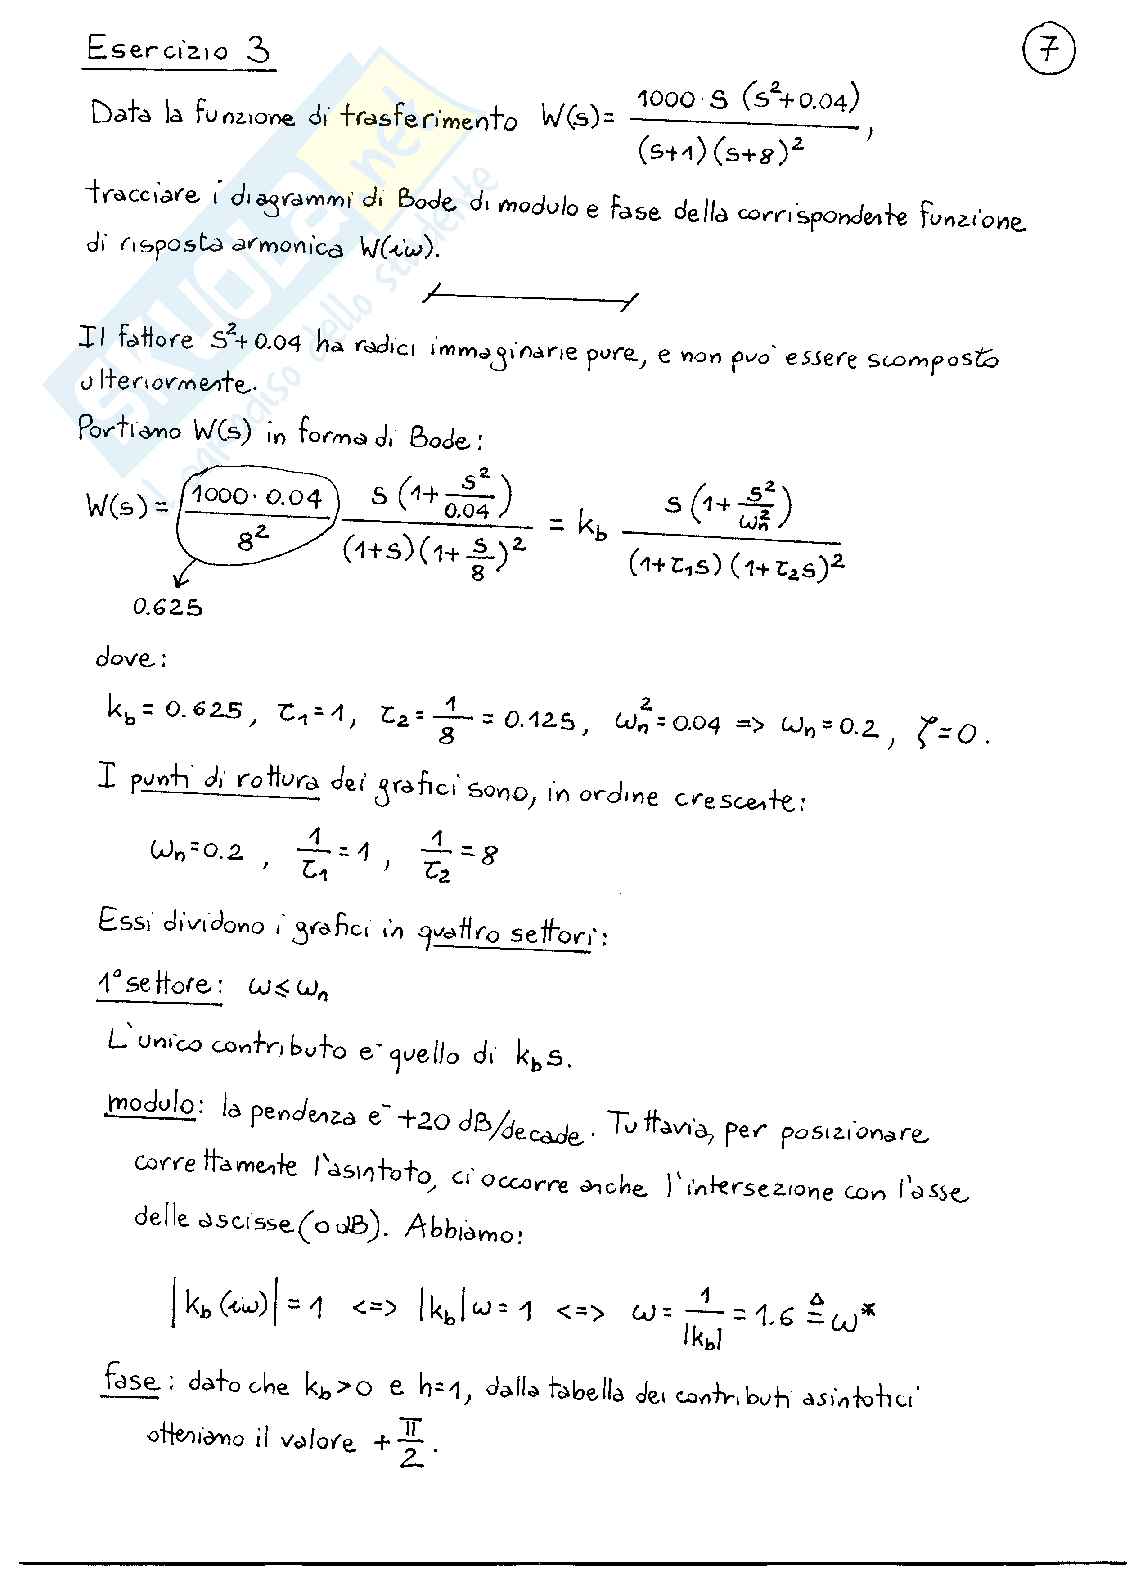 Esercizio 3
7
Data la funzione di trasferimento W(s)= 1000·s (s²+0.04) / (s+1)(s+8)² ,
tracciare i diagrammi di Bode di modulo e fase della corrispondente funzione
di risposta armonica W(iω).
Il fattore s²+0.04 ha radici immaginarie pure, e non può essere scomposto
ulteriormente.
Portiamo W(s) in forma di Bode:
W(s) = 1000·0.04 / 8² s(1+ s²/0.04) / (1+s)(1+ s/8)² = k_b s(1+ s²/ω_n²) / (1+τ₁s)(1+τ₂s)²
0.625
dove:
k_b = 0.625, τ₁=1, τ₂= 1/8 = 0.125, ω_n²=0.04 => ω_n=0.2, ζ=0.
I punti di rottura dei grafici sono, in ordine crescente:
ω_n=0.2 , 1/τ₁ =1 , 1/τ₂ =8
Essi dividono i grafici in quattro settori:
1° settore: ω≤ω_n
L'unico contributo è quello di k_b s.
modulo: la pendenza è +20 dB/decade. Tuttavia, per posizionare
correttamente l'asintoto, ci occorre anche l'intersezione con l'asse
delle ascisse (0 dB). Abbiamo:
|k_b (iω)| = 1 <=> |k_b| ω = 1 <=> ω = 1/|k_b| = 1.6 ≜ ω*
fase: dato che k_b>0 e h=1, dalla tabella dei contributi asintotici
otteniamo il valore + π/2 .
SKUOLA.net
il paradiso dello studente